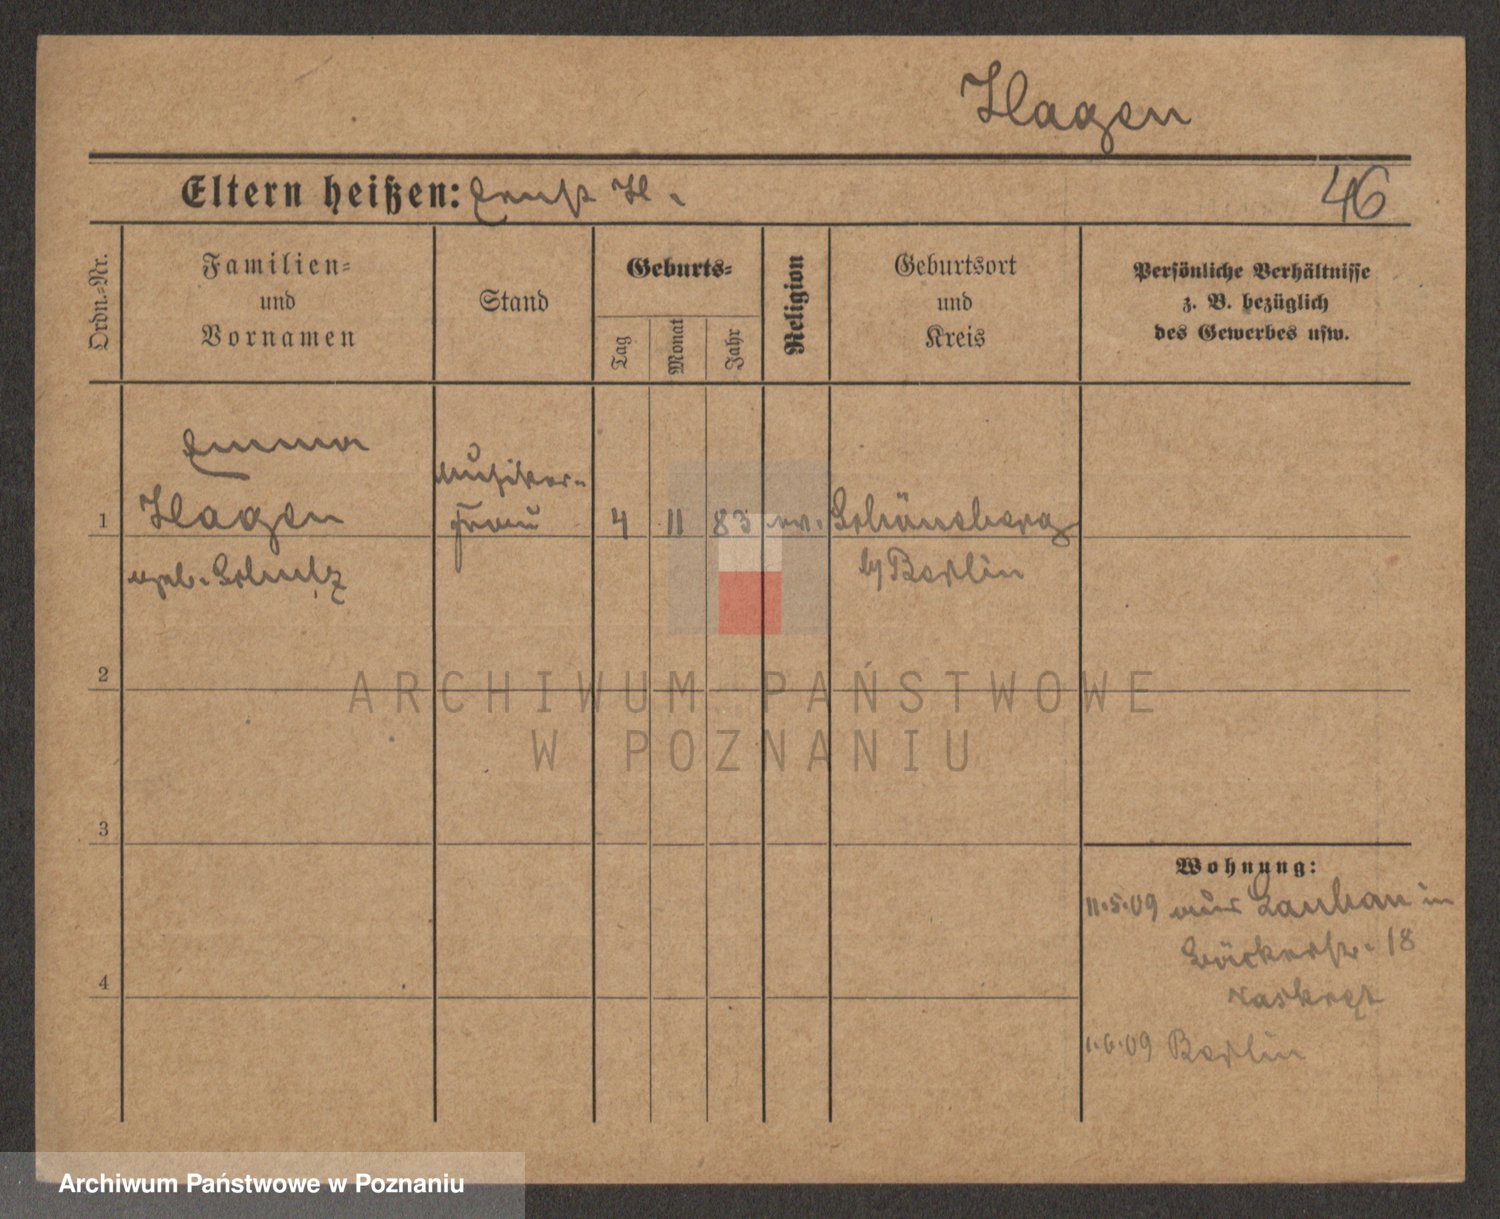 Hagen
Eltern heißen: Ernst H.
46
Ordn.-Nr.
Familien-
und
Vornamen
Stand
Geburts-
Tag
Monat
Jahr
Religion
Geburtsort
und
Kreis
Persönliche Verhältnisse
z. B. bezüglich
des Gewerbes usw.
Emma
Musiker-
1 Hagen
frau 4 11 83 ev. Schöneberg
geb. Schulz
b/ Berlin
2
ARCHIWUM PAŃSTWOWE
W POZNANIU
3
Wohnung:
11.5.09 aus Lauban in
Bäckerstr. 18
4
1.6.09 Berlin
Archiwum Państwowe w Poznaniu